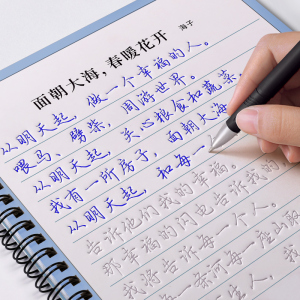 面朝大海，春暖花开
海子
从明天起，做一个幸福的人。
喂马，劈柴，周游世界。
从明天起，关心粮食和蔬菜，
我有一所房子，面朝大海
从明天起，和每一
告诉他们我的幸福。
那幸福的闪电告诉我的
我将告诉每一个人。
每一条河每一座山
人，我